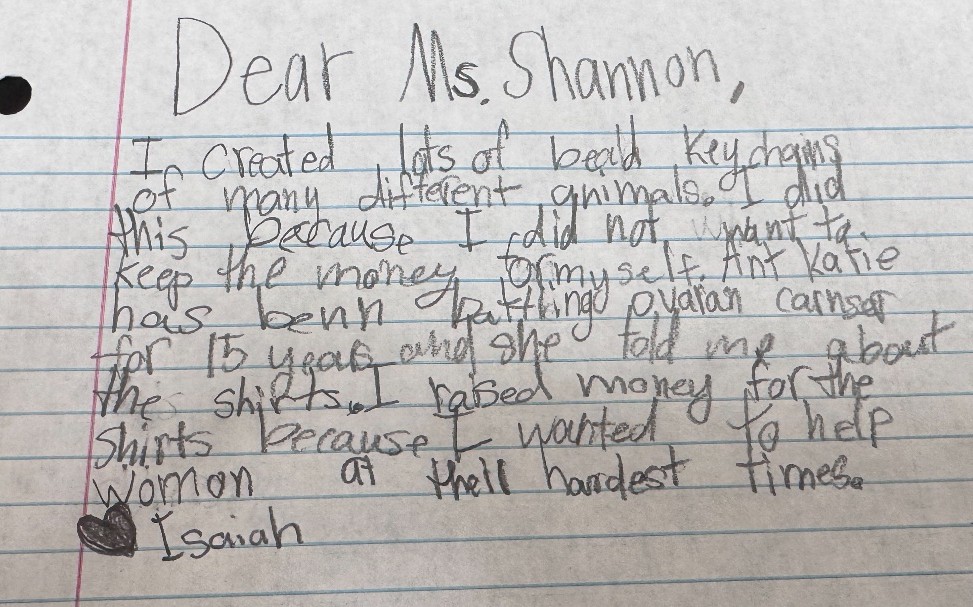 Dear Ms. Shannon,
I created lots of beald keychains
of many different animals. I did
this because I did not want to
keep the money for myself. Ant Katie
has benn battling ovaran carnser
for 15 years and she told me about
the shirts. I raised money for the
shirts because I wanted to help
womon at thell hardest times.
Isaiah